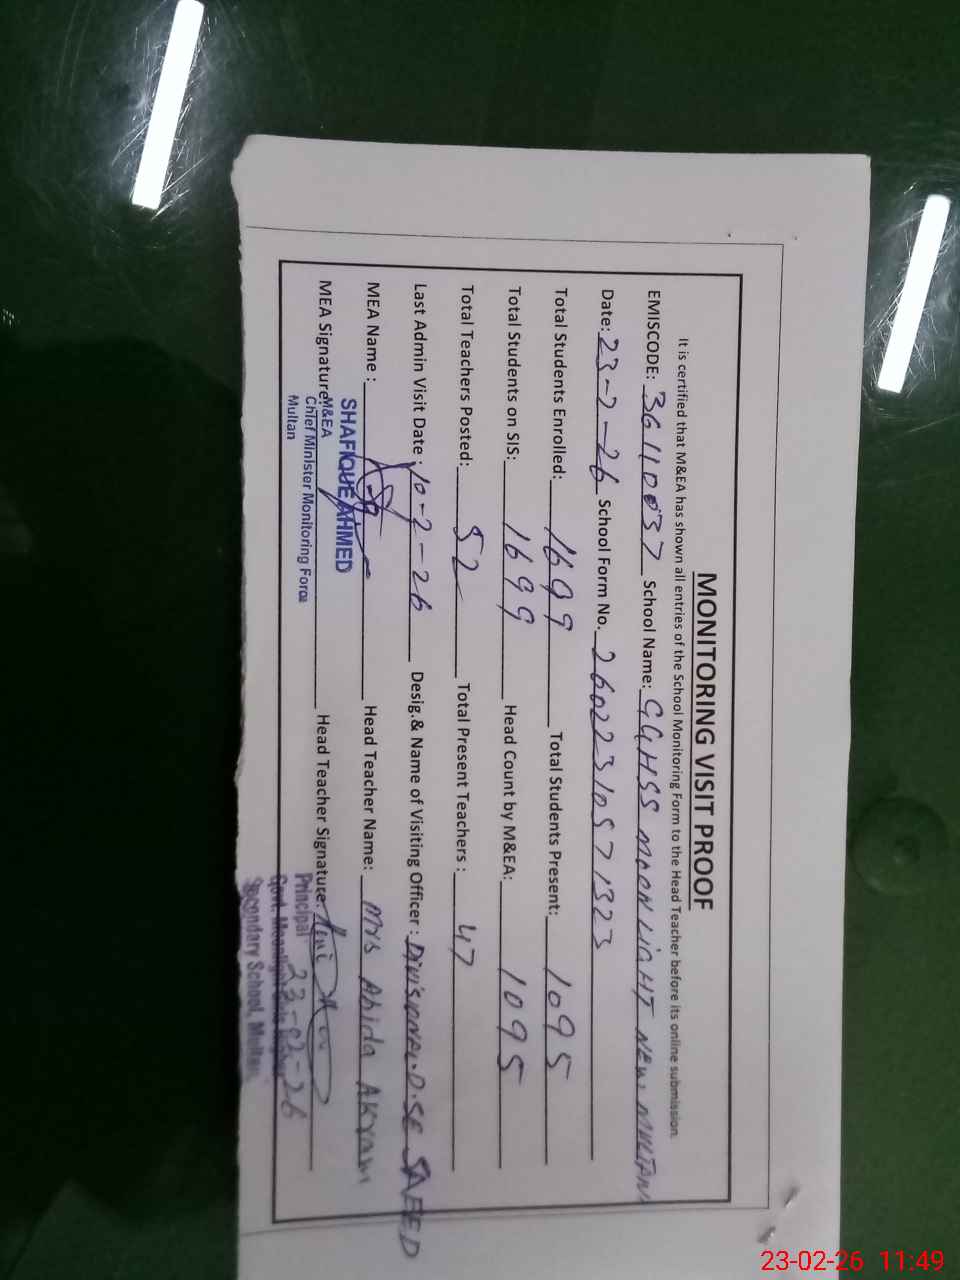 MONITORING VISIT PROOF
It is certified that M&EA has shown all entries of the School Monitoring Form to the Head Teacher before its online submission.
EMISCODE: 36110037 School Name: GGHSS MOON LIGHT NEW. MULTAN
Date: 23-2-26 School Form No. 26022310571323
Total Students Enrolled: 1699 Total Students Present: 1095
Total Students on SIS: 1699 Head Count by M&EA: 1095
Total Teachers Posted: 52 Total Present Teachers : 47
Last Admin Visit Date : 10-2-26 Desig.& Name of Visiting Officer : Divisional.D.SE SAEED
MEA Name : Head Teacher Name: Mrs Abida AKram
SHAFIQUE AHMED
MEA Signature: Head Teacher Signature:
M&EA
Chief Minister Monitoring Force
Multan
Principal 23-02-26
Govt. Moonlight Girls Higher
Secondary School, Multan
23-02-26 11:49